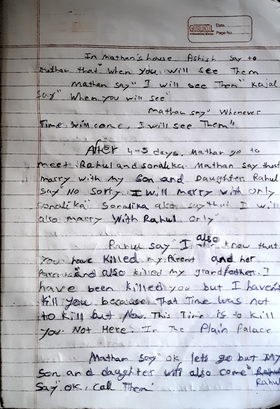 Date
Page No.
In Mathan's house. Ashish say to
Mathan that "When you will see Them
Mathan say" I will see Them" Kajal
say" When you will see"
Mathan say" Whenever
Time will come, I will see Them"
After 4-5 days, Mathan go to
meet Rahul and sonalika. Mathan say that
marry with My Son and Daughter, Rahul
say" No sorry, I Will marry with only
Sonalika" Sonalika also say that I will
also marry With Rahul only"
Rahul say I also know that
You have killed my Parent and her
Parent and also killed my grandfather. I
have been killed you but I haven't
kill you because That Time was not
to kill but Now. This Time is to kill
you. Not Here. In The Plain Palace
Mathan say" ok, lets go but My
Son and daughter will also come" Rahul
Say "OK. Call Them"